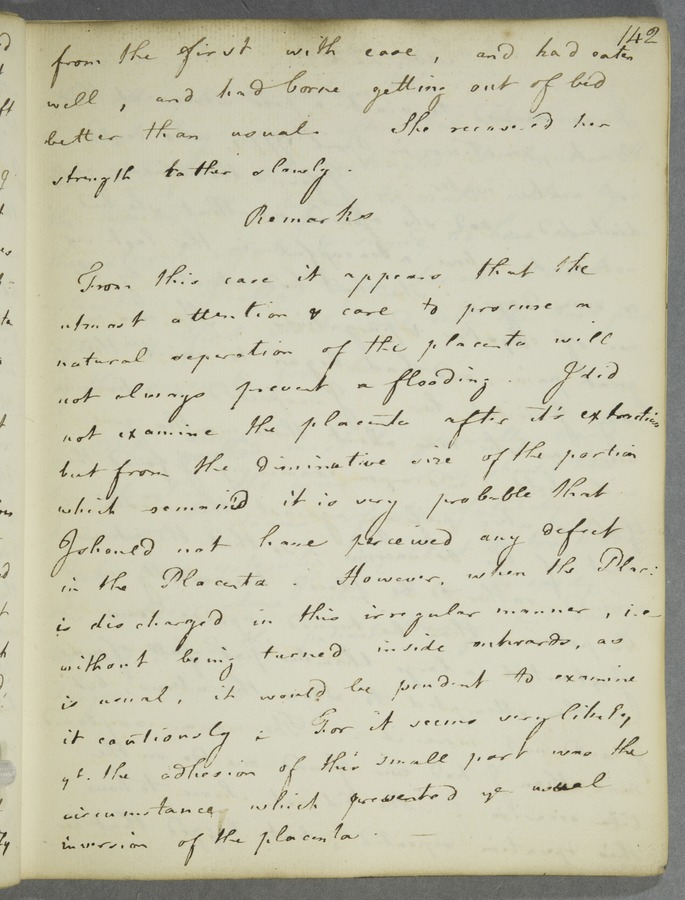 142
from the first with ease, and had eaten
well, and had borne getting out of bed
better than usual. She recovered her
strength rather slowly.
Remarks
From this case it appears that the
utmost attention & care to procure a
natural seperation of the placenta will
not always prevent a flooding. I did
not examine the placenta after it's extraction
but from the diminutive size of the portion
which remain'd it is very probable that
I should not have perceived any defect
in the Placenta. However, when the Plac:
is discharged in this irregular manner, i.e
without being turned inside outwards, as
is usual, it would be prudent to examine
it cautiously: For it seems very likely,
yt. the adhesion of this small part was the
circumstance which prevented ye usual
inversion of the placenta.